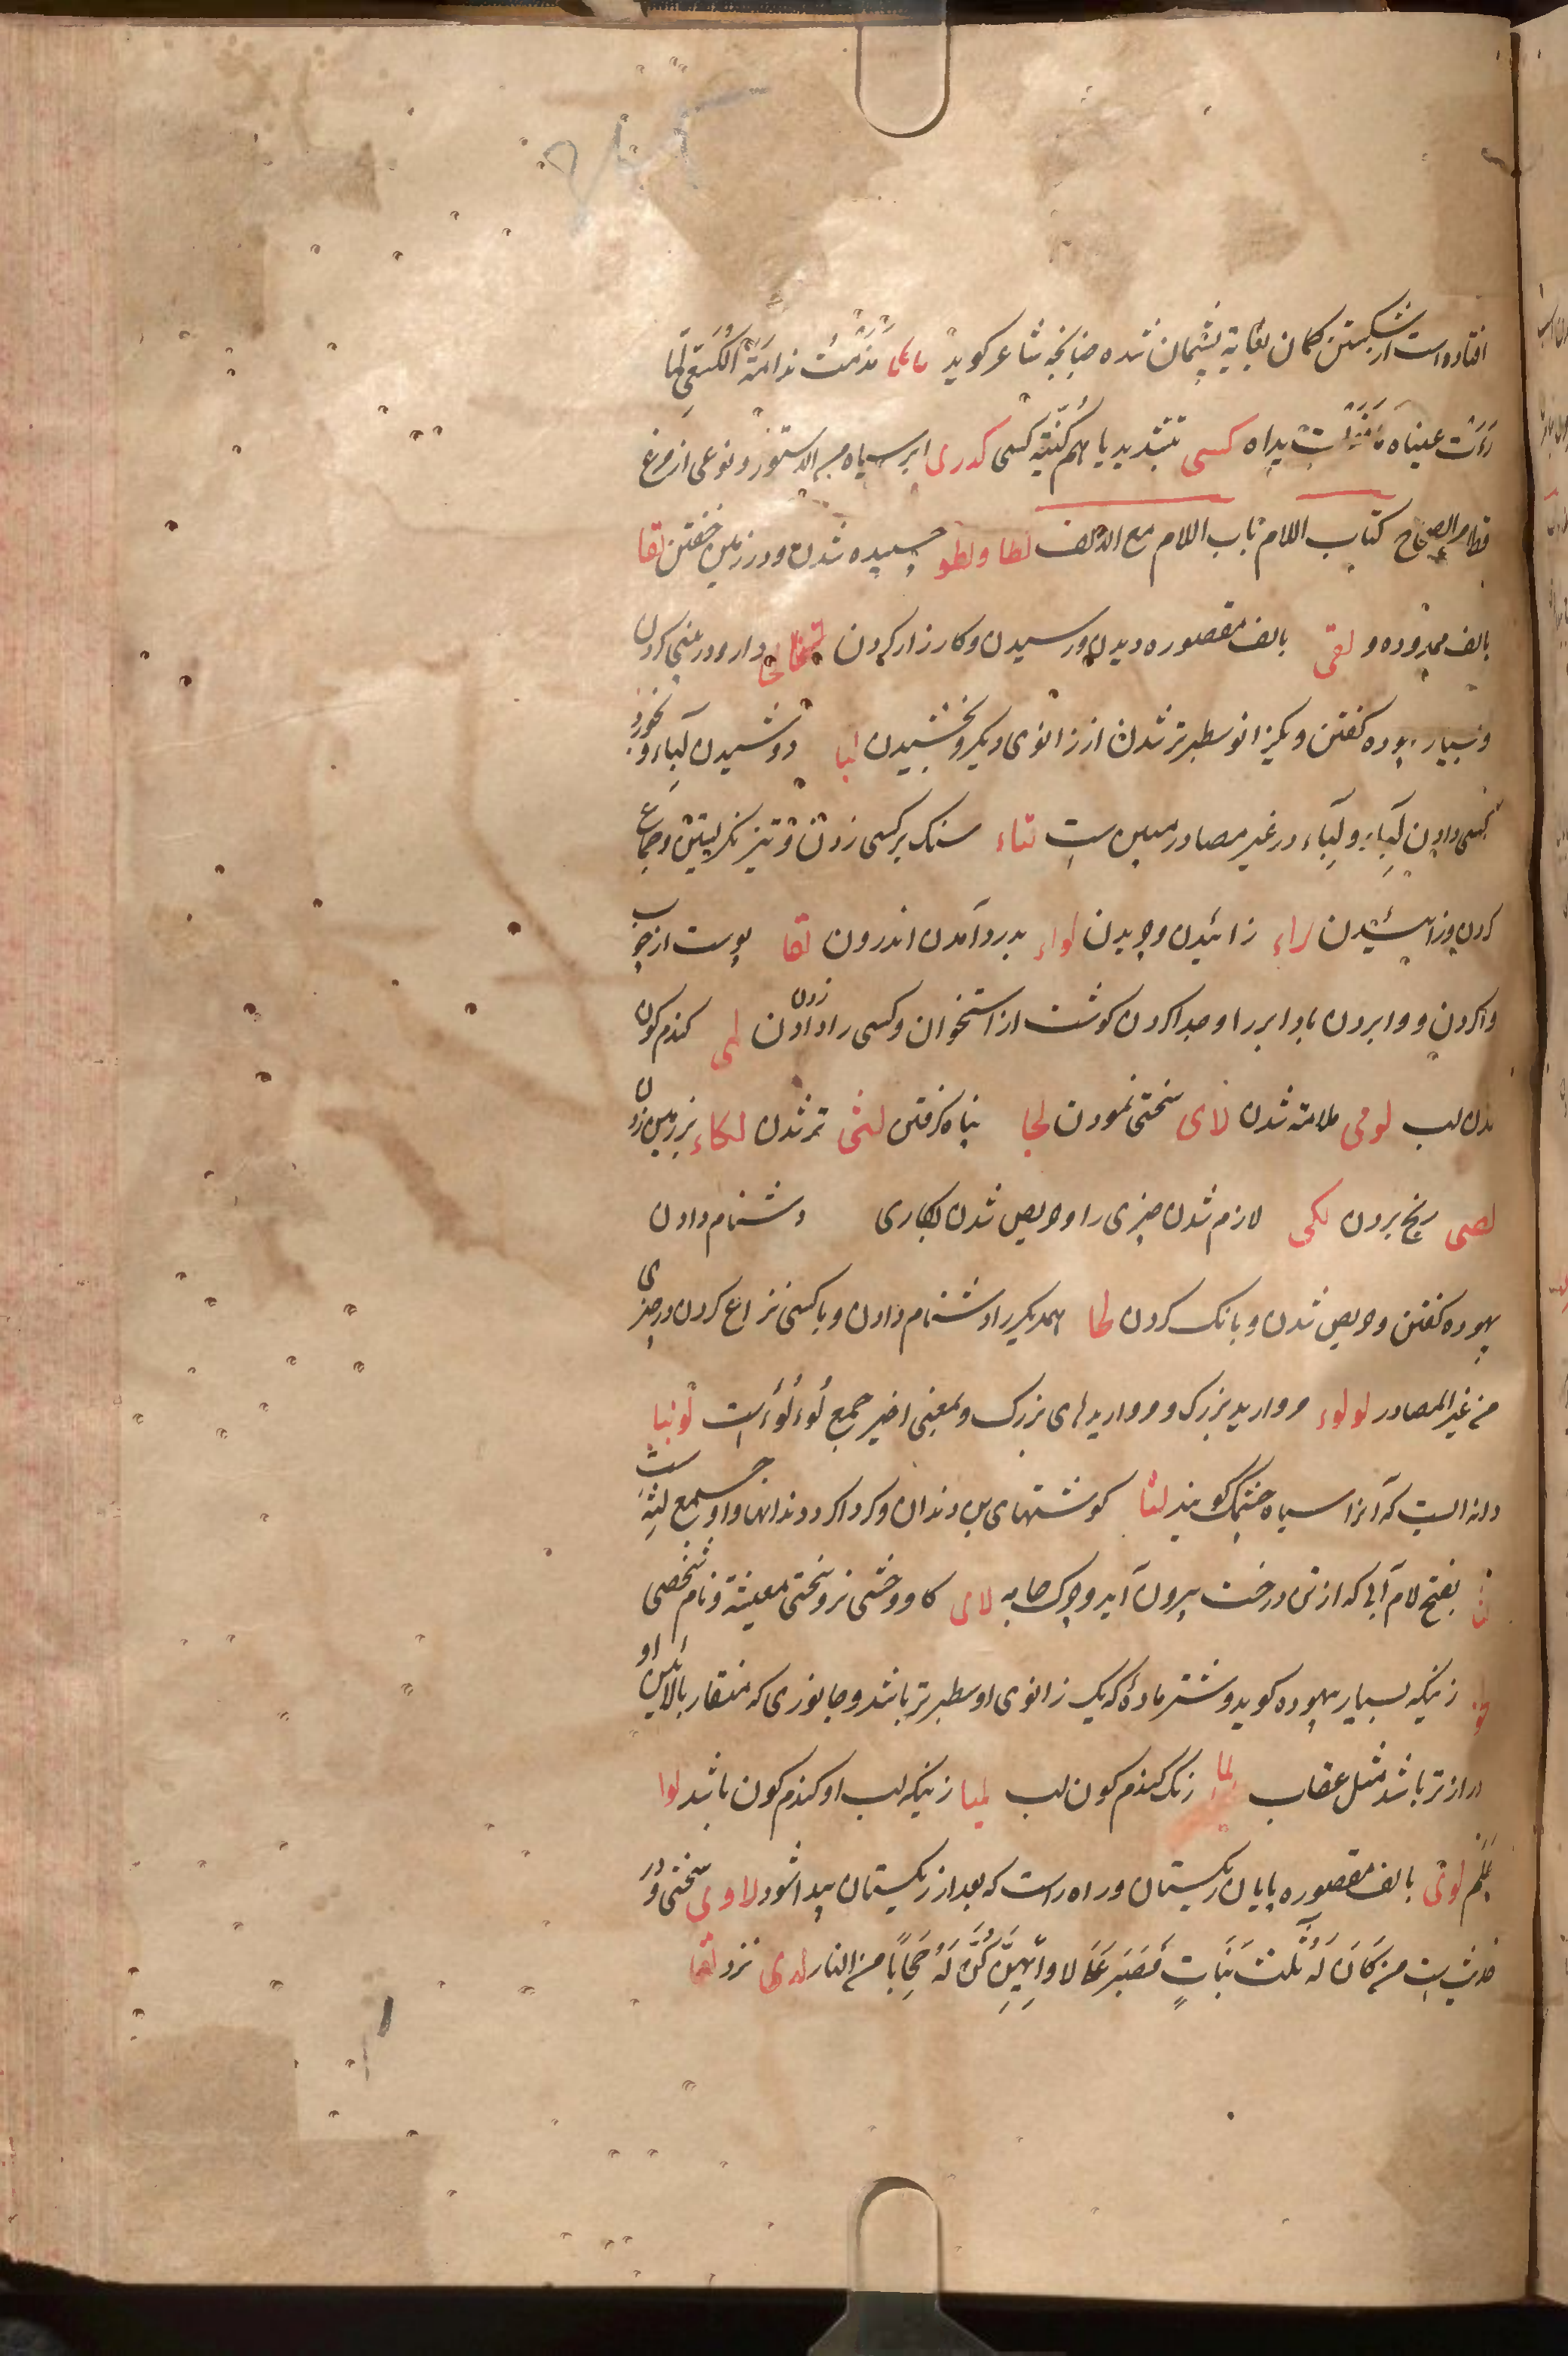 افتاده است از شکستن کمان بغایة پشیمان شده چنانچه شاعر گوید نَدِمْتُ ندامَةَ الکُسَعِی لَمّا
رَاَتْ عیناه یداه کسی بتشدید یا هم کُنیَة کسی کدری ابر سیاه من الدستور و نوعی از مرغ
کتاب اللام باب اللام مع الالف لطا و لطو چسپیده شدن و در زمین خفتن لقا
بالف ممدوده و لقی بالف مقصوره دیدن و رسیدن و کارزار کردن دارو در بینی کردن
و بسیار بیهوده گفتن و یکزانو سطبرتر شدن از زانوی دیگر و بخشیدن لبا دوشیدن لِبَاء و بخورد
کسی دادن لِبَاء و لِبَاء در غیر مصادر مبین است لتاء سنگ بر کسی زدن و تیز نگریستن و جماع
کردن و زائیدن وچیدن لواء بدرد آمدن اندرون لقا پوست از چوب
واکردن و وابردن باد ابر را و جدا کردن گوشت از استخوان و کسی را دادن زدن لمی گندم گون
شدن لب لومی ملامته شدن لای سختی نمودن لجا پناه گرفتن لثی تر شدن لکاء بر زمین زدن
لصی رنج بردن لکی لازم شدن چیزی را و حریص شدن بکاری دشنام دادن
بیهوده گفتن و حریص شدن و بانگ کردن لحا همدیگر را دشنام دادن و با کسی نزاع کردن در چیزی
من غیر المصادر لولوء مروارید بزرگ و مرواریدهای بزرگ و بمعنی اخیر جمع لُوءلُوءَ است لوبیا
دانه ایست که آنرا سیاه چشمک گویند لثا گوشتهای بن دندان و گرداگرد دندانها و او جمع لِثَة است
لثا بفتح لام آبی که از تن درخت بیرون آید و چرک جامه لای گاو وحشی نر و سختی معیشة و نام شخصی
زنیکه بسیار بیهوده گوید و شتر مادهٔ که یک زانوی او سطبرتر باشد و جانوری که منقار بالائین او
درازتر باشد مثل عقاب لما رنگ گندم گون لب لمیا زنیکه لب او گندم گون باشد لوا
عَلَم لوی بالف مقصوره پایان ریگستان و راه راست که بعد از ریگستان پیدا شود لاوی سختی و در
حدیث است من کَانَ لَهُ ثلث بَنَاتٍ فَصَبَرَ عَلَی لاوائِهِنَّ کُنَّ لَهُ حِجَاباً من النار لدی نزد لقا